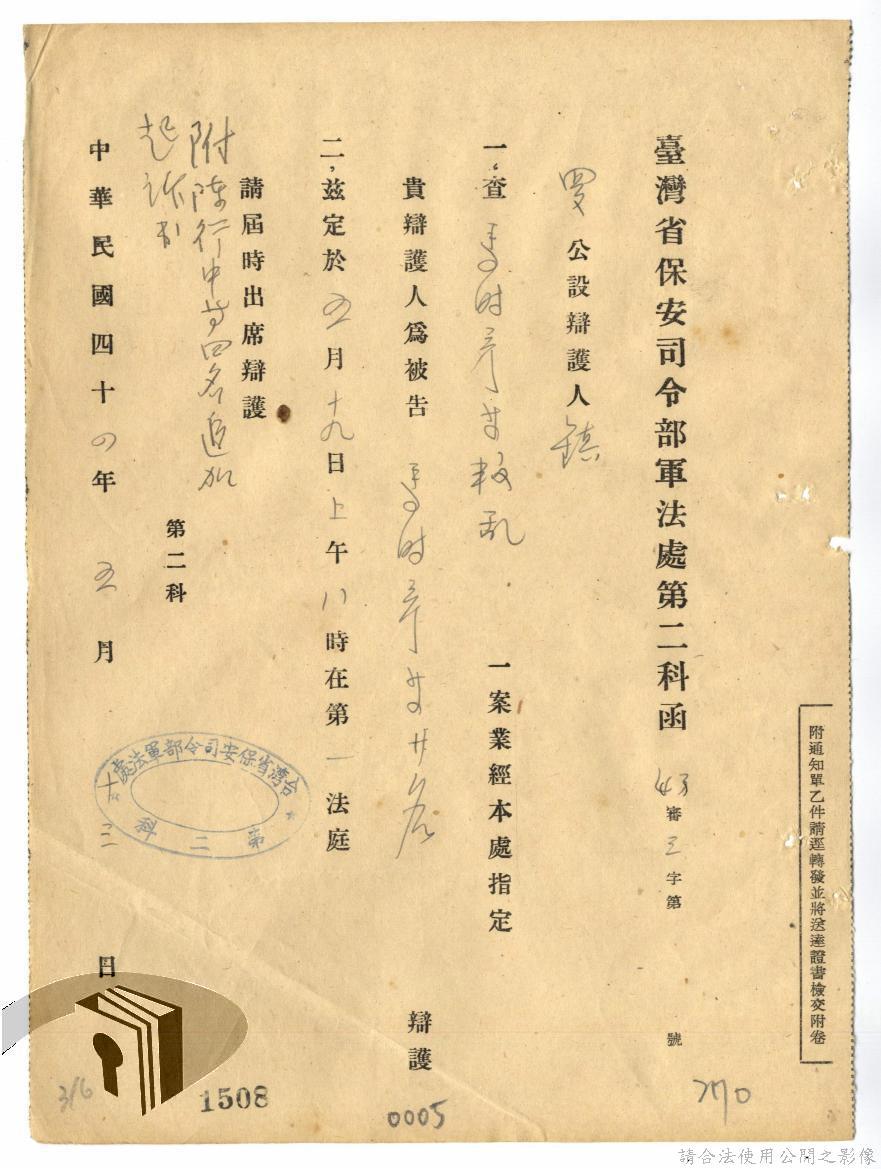 附通知單乙件請逕轉發並將送達證書檢交附卷
臺灣省保安司令部軍法處第二科函 審三字第 號
公設辯護人 鎮
一、查馬時彥等叛乱 一案業經本處指定
貴辯護人為被告 馬時彥等廿名 辯護
二、茲定於五月十九日上午八時在第一法庭
請屆時出席辯護
附陳行中等四名追加
起訴書
第二科
中華民國四十四年 五月 十三 日
台灣省保安司令部軍法處
第二科
316
1508
0005
請合法使用公開之影像